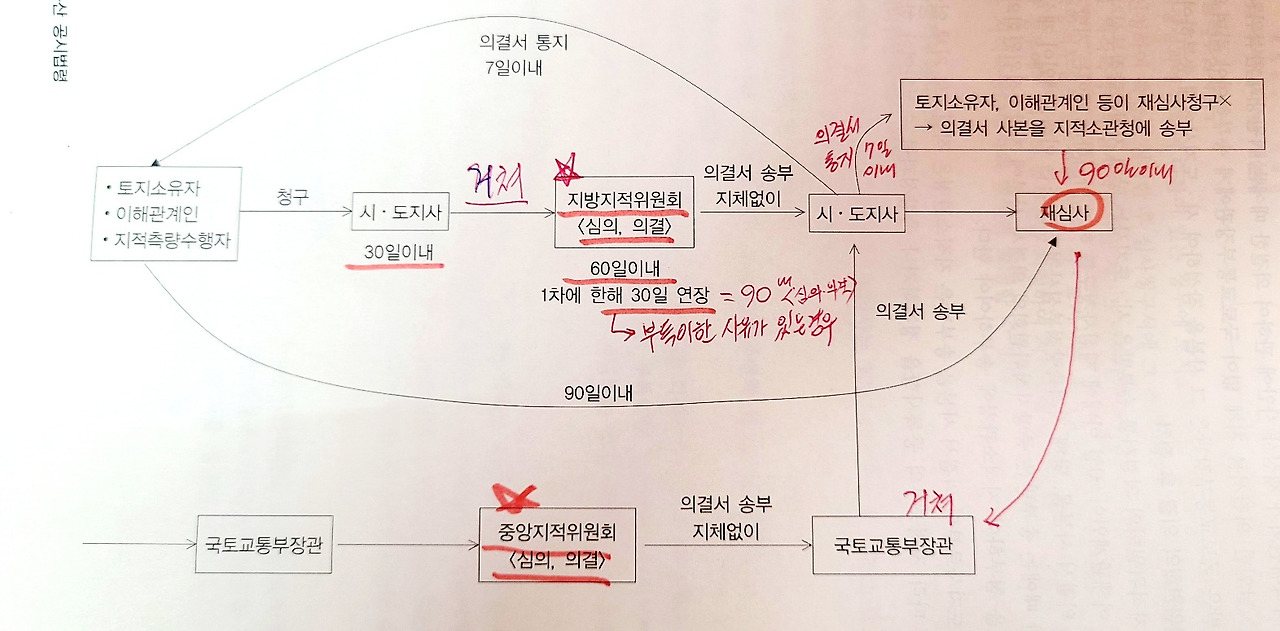 산 공시법령
의결서 통지
7일이내
토지소유자, 이해관계인 등이 재심사청구×
→ 의결서 사본을 지적소관청에 송부
의결서
통지
7일
이내
90일이내
• 토지소유자
• 이해관계인
• 지적측량수행자
청구
시·도지사
30일이내
거쳐
지방지적위원회
〈심의, 의결〉
60일이내
1차에 한해 30일 연장
= 90
부득이한 사유가 있는경우
의결서 송부
지체없이
시·도지사
재심사
의결서 송부
90일이내
국토교통부장관
중앙지적위원회
〈심의, 의결〉
의결서 송부
지체없이
거쳐
국토교통부장관